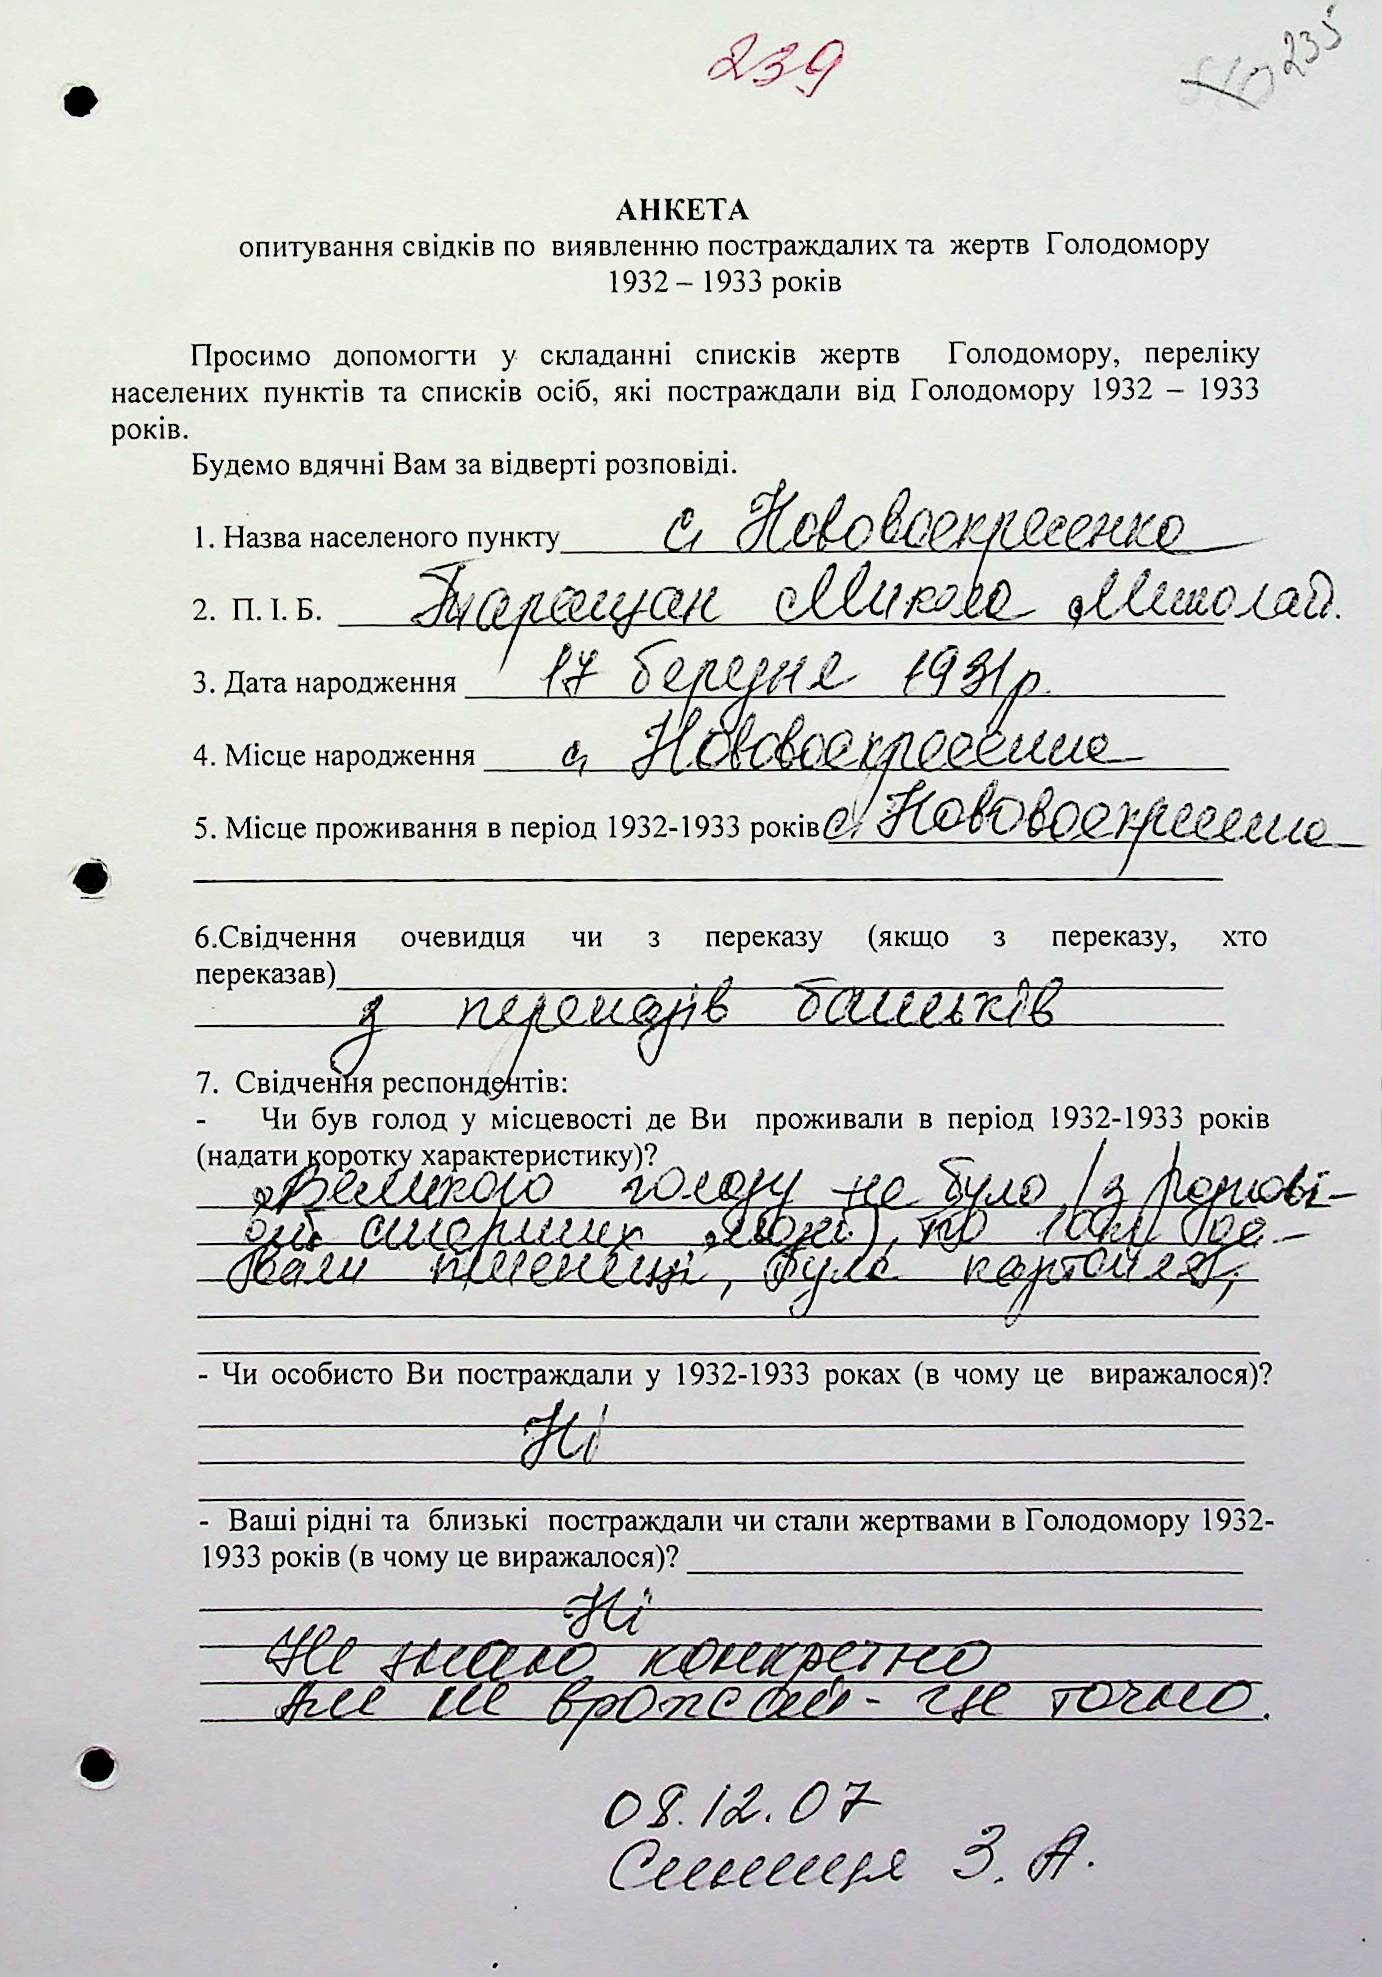 239
235
АНКЕТА
опитування свідків по виявленню постраждалих та жертв Голодомору
1932 – 1933 років
Просимо допомогти у складанні списків жертв Голодомору, переліку
населених пунктів та списків осіб, які постраждали від Голодомору 1932 – 1933
років.
Будемо вдячні Вам за відверті розповіді.
1. Назва населеного пункту с. Нововоскресенка
2. П. І. Б. Таращан Микола Миколай.
3. Дата народження 17 березня 1931 р.
4. Місце народження с. Нововоскресенка
5. Місце проживання в період 1932-1933 років с. Нововоскресенка
6.Свідчення очевидця чи з переказу (якщо з переказу, хто
переказав)
з переказів батьків
7. Свідчення респондентів:
- Чи був голод у місцевості де Ви проживали в період 1932-1933 років
(надати коротку характеристику)?
Великого голоду не було (з розпові-
дей старших людей), по да-
вали пшениці, була картопля,
- Чи особисто Ви постраждали у 1932-1933 роках (в чому це виражалося)?
Ні
- Ваші рідні та близькі постраждали чи стали жертвами в Голодомору 1932-
1933 років (в чому це виражалося)?
Ні
Не знаю конкретно
але не врожай - це точно.
08.12.07
Синиця З. А.